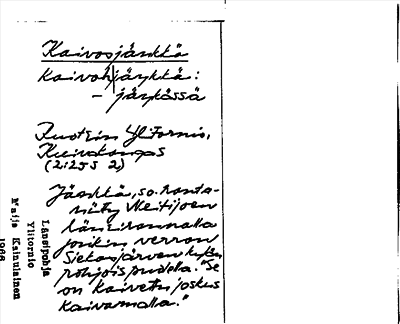 Kaivosjänkkä
Kaivosjänkkä:
– jänkässä
Ruotsin Ylitornio,
(2:25 S 2)
Jänkkä, so. ranta-
niitty
länsirannalla
jonkin verran
Siekasjärven kylän
pohjoispuolella. "Se
on kaivettu joskus
kaivamalla."
Länsipohja
Ylitornio
Maija Kainulainen
1968